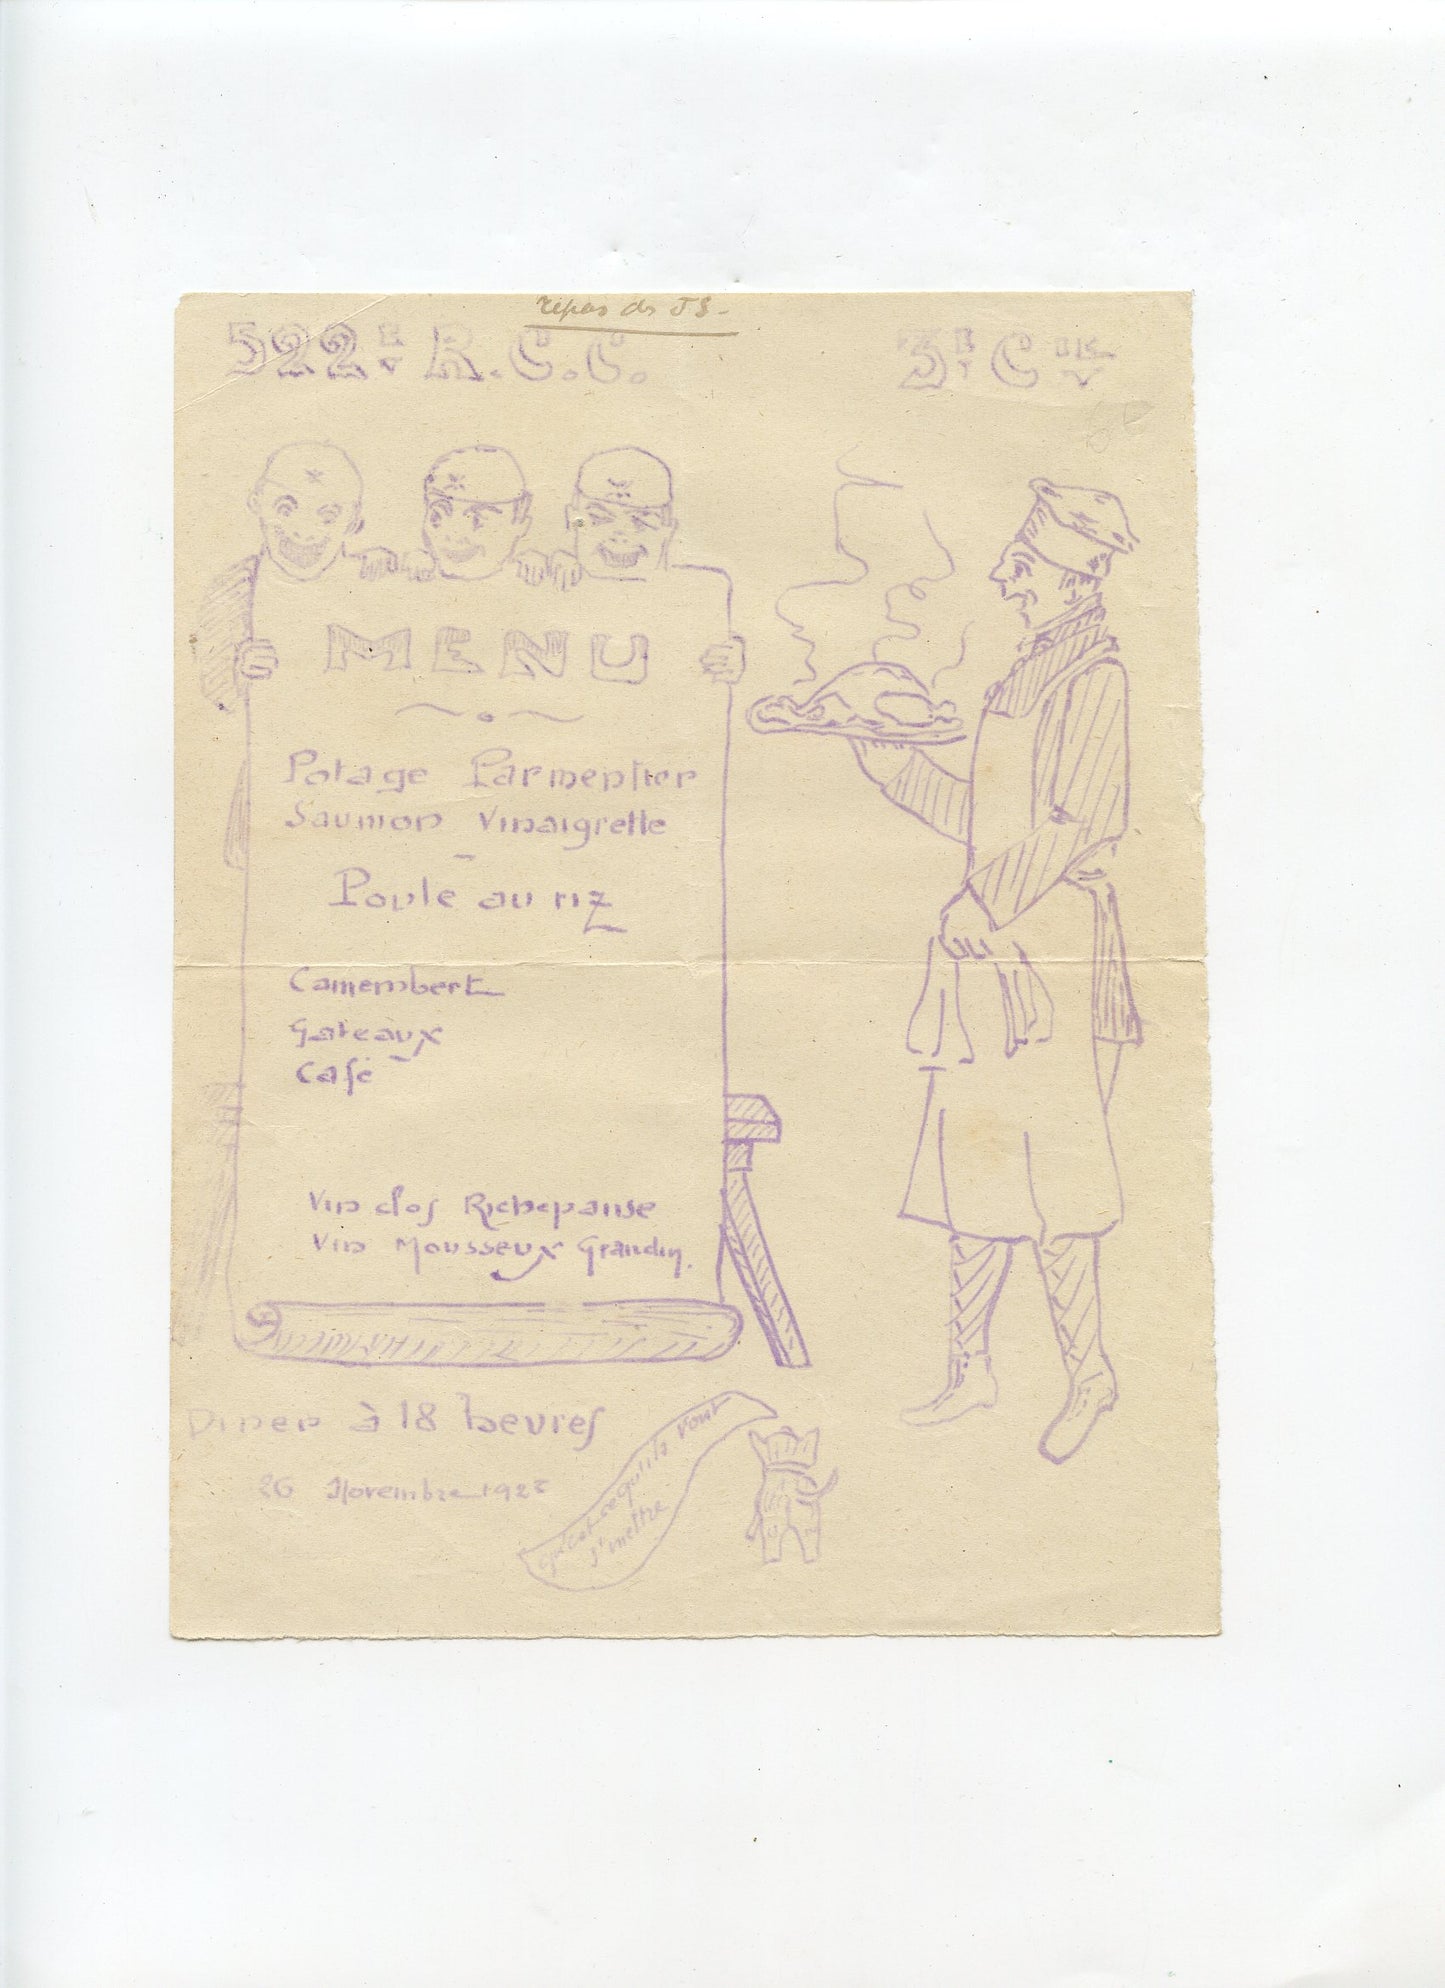 repas des J S -
522E R.C.C. 3E CIE
MENU
Potage Parmentier
Saumon Vinaigrette
Poule au riz
Camembert
Gateaux
Café
Vin clos Richepanse
Vin Mousseux Grandin.
Diner à 18 heures
26 Novembre 192
qu'est-ce qu'ils vont
s' mettre